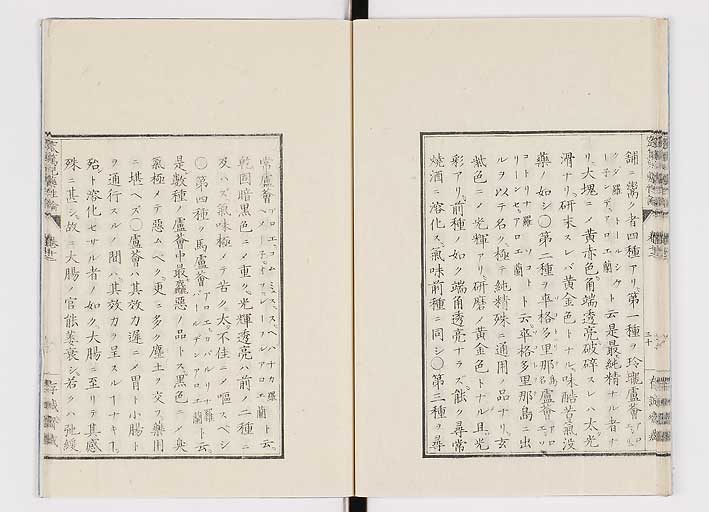 舗ニ鬻ク者四種アリ第一種ヲ玲瓏蘆薈
ト云是最純精ナル者ナ
リ大塊ニノ黄赤色角端透亮破碎スレハ太光
滑ナリ研末スレバ黄金色トナル味酷苦氣没
藥ノ如シ〇第二種ヲ蘇格多里那蘆薈
ト云蘇格多里那島ニ出
ルヲ以テ名ク極テ純精殊ニ通用ノ品ナリ玄
紫色ニノ光輝アリ研磨ノ黄金色トナル且光
彩アリ前種ノ如ク端角透亮ナラズ能ク尋常
燒酒ニ溶化ス氣味前種ニ同シ〇第三種ヲ尋
常蘆薈ト云
乾固暗黒色ニノ重ク光輝透亮ハ前ノ二種ニ
及ハズ氣味極ノテ苦ク太不佳ニノ嘔スベシ
〇第四種ヲ馬蘆薈ト云
是數種ノ蘆薈中最麤惡ノ品トス黒色ニノ臭
氣極ノテ惡ムベク更ニ多ク塵土ヲ交ヘ藥用
ニ堪ヘズ〇蘆薈ハ其效力遲ニノ胃ト小腸ト
ヲ通行スルノ間ハ其效力ヲ呈スルヿナキヿ
殆ント溶化セサル者ノ如ク大腸ニ至リテ其感
殊ニ甚シ故ニ大腸ノ官能萎衰シ若クハ弛緩